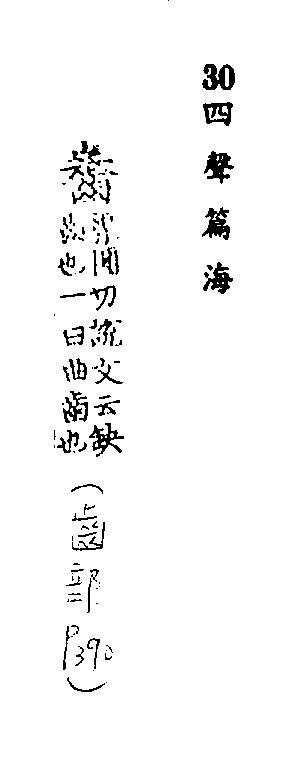 30四聲篇海
齤
間切說文云缺
齒也一曰曲齒也
(齒部P390)